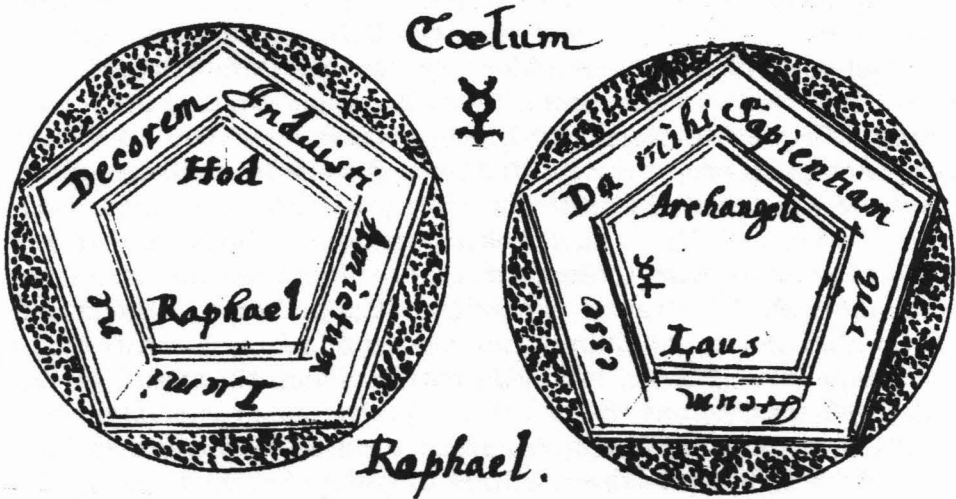 Coelum
☿
Decorem
Induisti
Amictum
Lumi
ne
Hod
Raphael
Da mihi
Sapientiam
qui
esse
Archangeli
☿
Laus
Raphael.